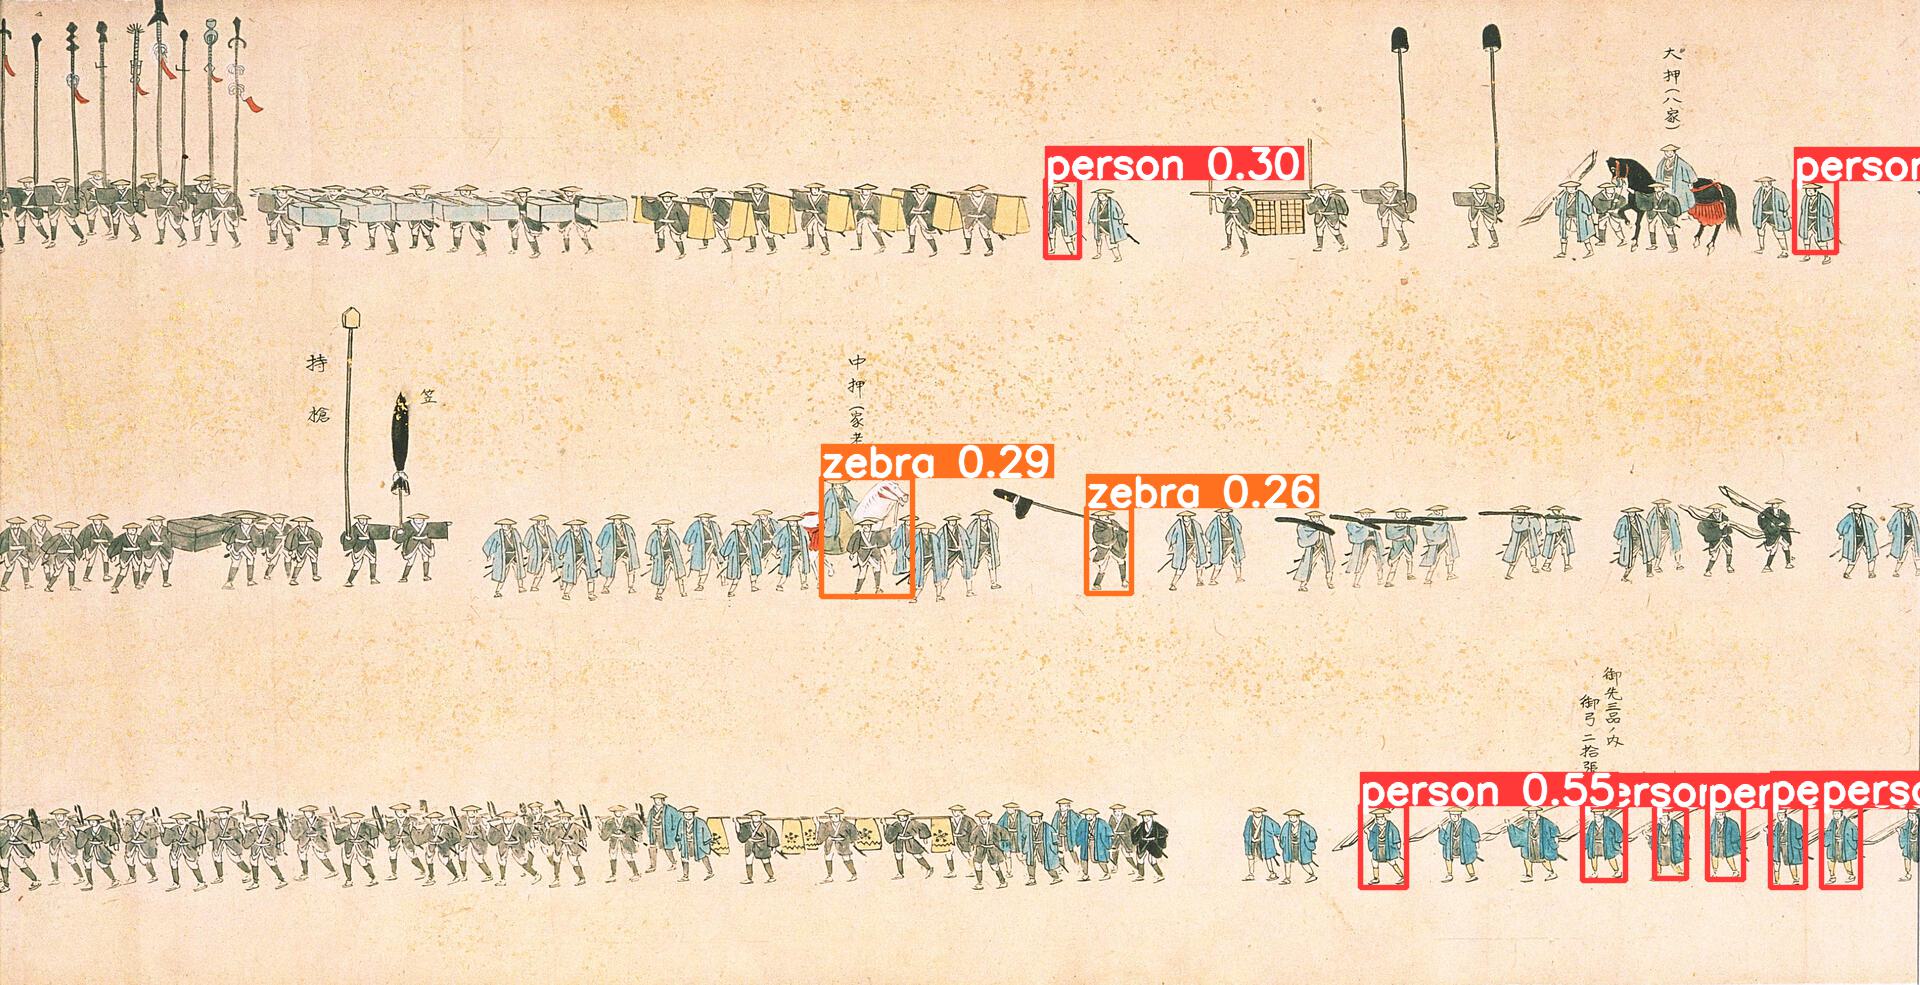 大押(八家)
person 0.30
person
持槍
笠
中押(家老
zebra 0.29
zebra 0.26
御先三品ノ内
御弓二拾張
person 0.55
erso
per
pe
perso